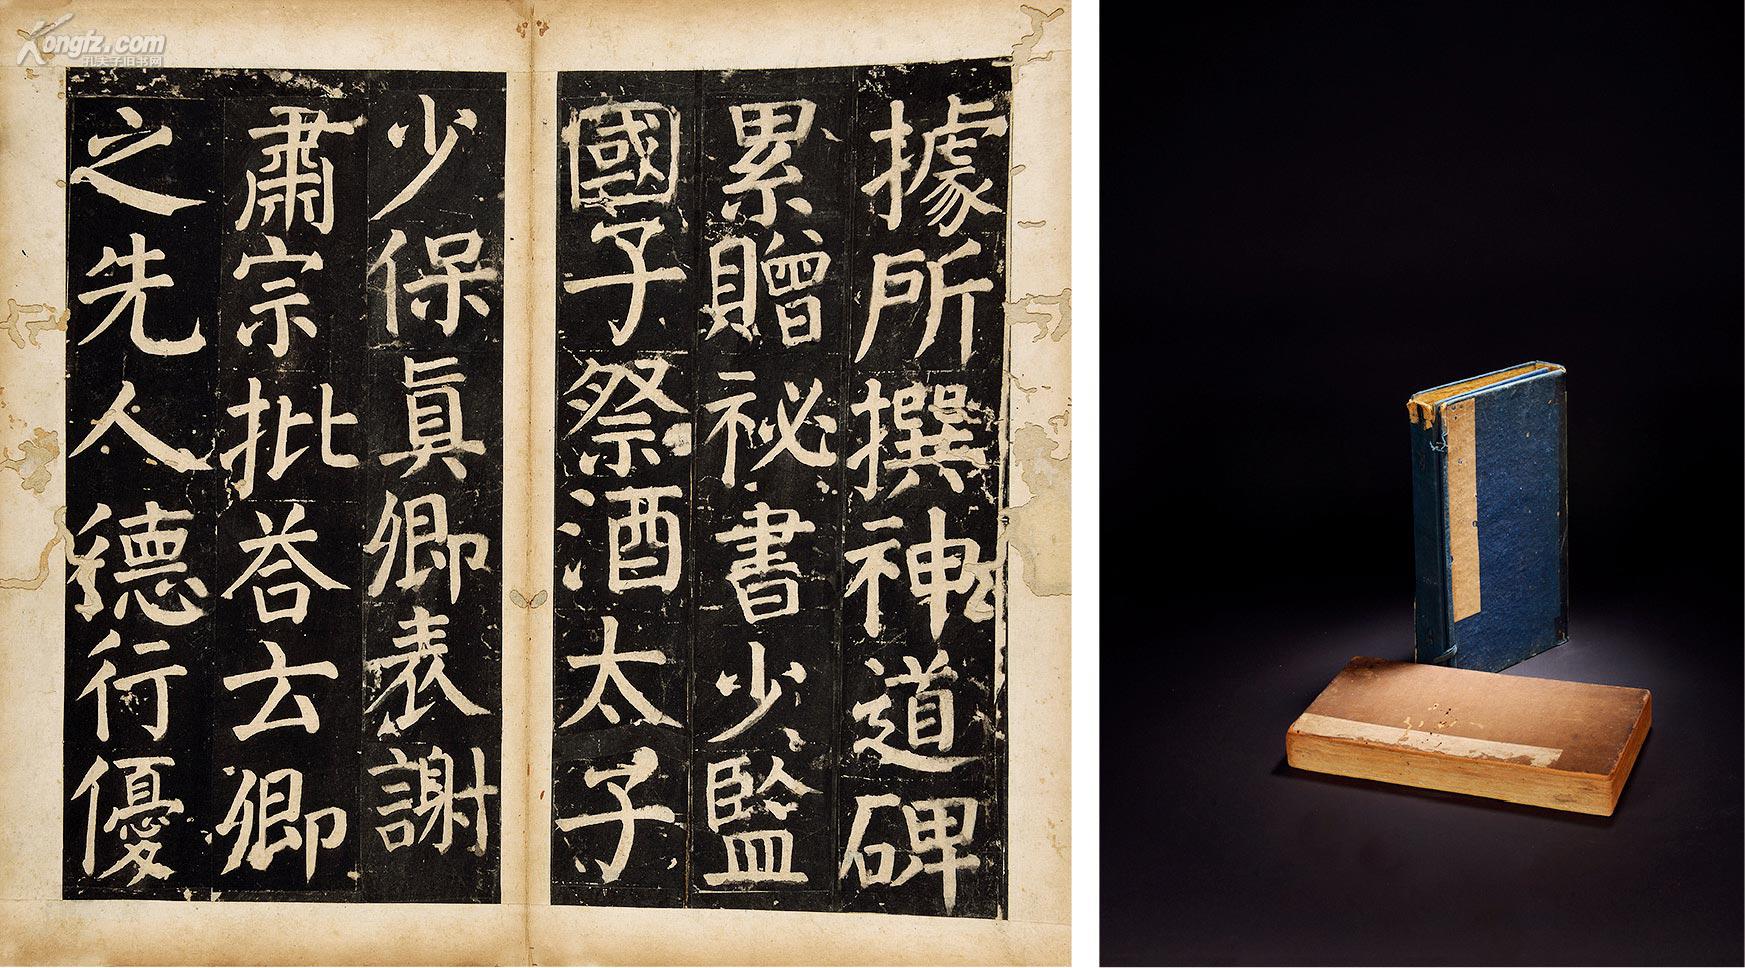 據所撰神道碑
累贈祕書少監
國子祭酒太子
少保眞卿表謝
肅宗批荅云卿
之先人德行優
Kongfz.com
孔夫子旧书网